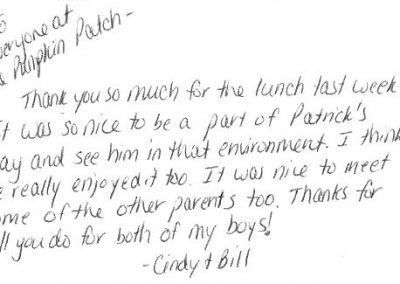 eryone at
Pumpkin Patch-
Thank you so much for the lunch last week
t was so nice to be a part of Patrick's
ay and see him in that environment. I think
e really enjoyed it too. It was nice to meet
ome of the other parents too. Thanks for
ll you do for both of my boys!
-Cindy + Bill